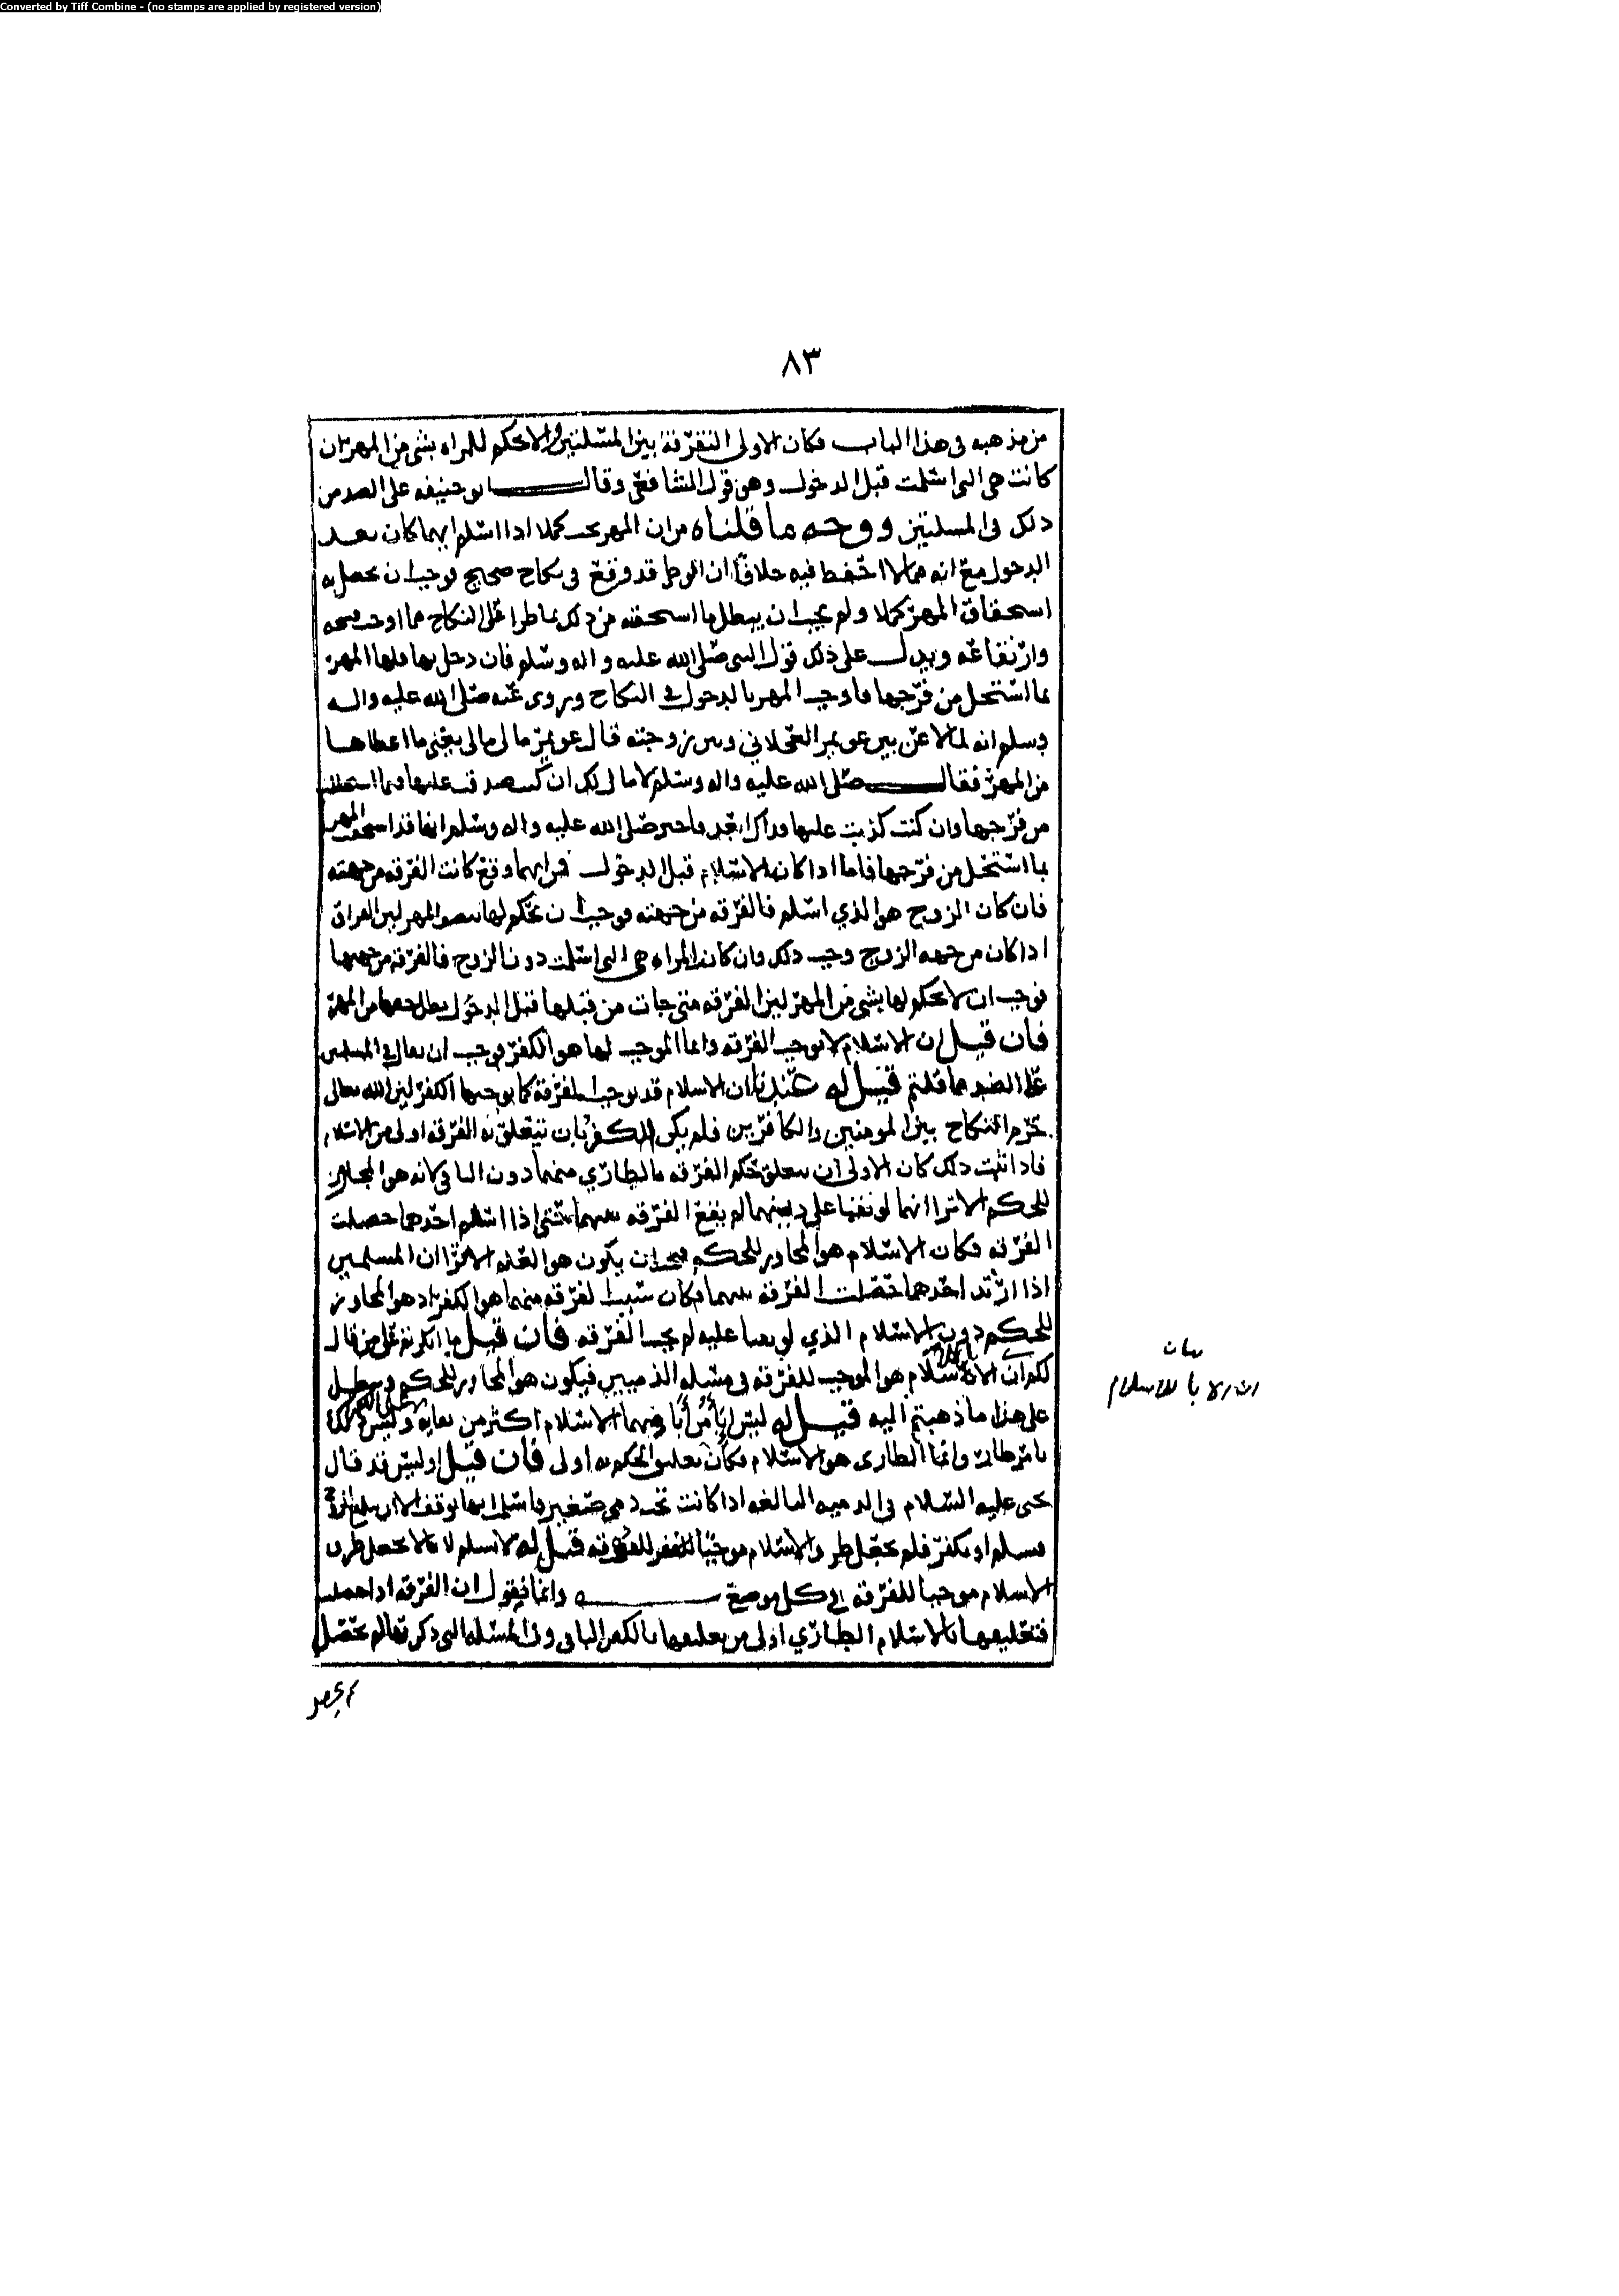 Converted by Tiff Combine - (no stamps are applied by registered version)
٨٣
من مذهبه في هذا الباب فكان الاولى التفرقة بين المسئلتين والا يحكم للمراه بشي من المهر ان
كانت هي التي اسلمت قبل الدخول وهو قول الشافعي وقال ابو حنيفه على الضد من
ذلك في المسلتين ووجه ما قلناه من ان المهر يجب كملا اذا اسلم ايهما كان بعد
الدخول مع انه مما لا احفظ فيه خلافا ان الوطي قد وقع في نكاح صحيح فوجب ان يحصل به
استحقاق المهر كملا ولم يجب ان يبطل ما استحقته من ذلك بما طرا على النكاح مما اوجب فسخه
وارتفاعه ويدل على ذلك قول النبي صلى الله عليه واله وسلم فان دخل بها فلها المهر
بما استحل من فرجها فاوجب المهر بالدخول في النكاح وروى عنه صلى الله عليه واله
وسلم انه لما لاعن بين عويمر العجلاني وبين زوجته قال عويمر مالي مالي يعني ما اعطاها
من المهر فقال صلى الله عليه واله وسلم لا مال لك ان كنت صدقت عليها فبما استحللت
من فرجها وان كنت كذبت عليها فذاك ابعد فاخبر صلى الله عليه واله وسلم انها قد استحقت المهر
بما استحل من فرجها فاما اذا كان الاسلام قبل الدخول فمن ايهما وقع كانت الفرقه من جهته
فان كان الزوج هو الذي اسلم فالفرقه من جهته فوجب ان يحكم لها بنصف المهر لان الفراق
اذا كان من جهه الزوج وجب ذلك وان كانت المراه هي التي اسلمت دون الزوج فالفرقه من جهتها
فوجب ان لا يحكم لها بشي من المهر لان الفرقه متى جات من قبلها قبل الدخول بطل حقها من المهر
فان قيل ان الاسلام لا يوجب الفرقه وانما الموجب لها هو الكفر فوجب ان يقال في المسلتين
على الضد مما قلتم قيل له عندنا ان الاسلام قد يوجب الفرقة كما يوجبها الكفر لان الله تعالى
حرم النكاح بين المومنين والكافرين فلم يكن الكفر بان يتعلق به الفرقه اولى من الاسلام
فاذا ثبت ذلك كان الاولى ان يتعلق حكم الفرقه بالطاري منهما دون الباقي لانه هو المجاور
للحكم الا ترا انهما لو بقيا على دينهما لم يقع الفرقه بينهما حتى اذا اسلم احدهما حصلت
الفرقه فكان الاسلام هو المجاور للحكم فيجب ان يكون هو العله الا ترا ان المسلمين
اذا ارتد احدهما حصلت الفرقة بينهما فكان سبب الفرقه منهما هو الكفر اذ هو المجاور
للحكم دون الاسلام الذي لو بقيا عليه لم يجب الفرقه فان قيل ما انكرتم على من قال
لكم ان الابا الاسلام هو الموجب للفرقه في مسله الذميين فيكون هو المجاور للحكم ويبطل
على هذا ما ذهبتم اليه قيل له ليس يامر ابا وفيهما الاسلام اكثر من بقايه على الكفر وليس ذلك
بامر طارئ وانما الطارى هو الاسلام فكان تعليق الحكم به اولى فان قيل اوليس قد قال
يحيى عليه السلام في الذميه البالغه اذا كانت تحت ذمي صغير فاسلمت انها توقف الى ان يبلغ الزوج
فيسلم او يكفر فلم يجعل طرو الاسلام موجبا للفرقه قيل له لا يسلم لانا لا نجعل طرو
الاسلام موجبا للفرقه في كل موضع وانما نقول ان الفرقه اذا حصلت
فتعليقها بالاسلام الطاري اولى من تعليقها بالكفر الباقي وفي المسئله التي ذكرتها لم تحصل
بيان
ان الابا للاسلام